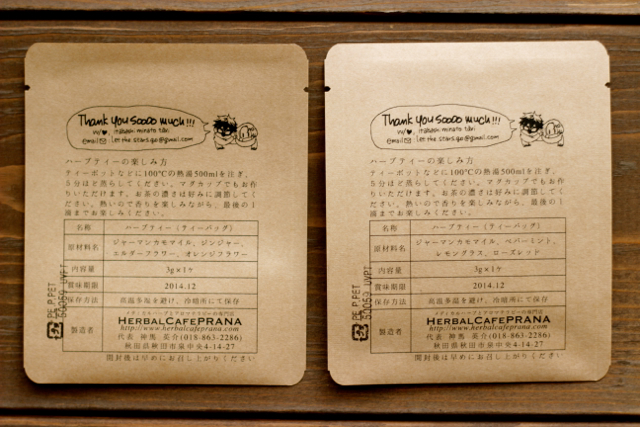 Thank you soooo much!!!
w/♥, itabashi minato tāri
email✉ : let.the.stars.go@gmail.com
ハーブティーの楽しみ方
ティーポットなどに100℃の熱湯500mlを注ぎ、
5分ほど蒸らしてください。マグカップでもお作
りいただけます。お茶の濃さは好みに調節してく
ださい。熱いので香りを楽しみながら、最後の1
滴までお楽しみください。
名称 ハーブティー(ティーバッグ)
原材料名 ジャーマンカモマイル、ジンジャー、
エルダーフラワー、オレンジフラワー
内容量 3g×1ヶ
賞味期限 2014.12
保存方法 高温多湿を避け、冷暗所にて保存
製造者 メディカルハーブとアロマテラピーの専門店
HERBALCAFEPRANA
http://www.herbalcafeprana.com/
代表 神馬 英介(018-863-2286)
秋田県秋田市泉中央4-14-27
開封後は早めにお召し上がりください
PE,P,PET
50059 UVPT
Thank you soooo much!!!
w/♥, itabashi minato tāri
email✉ : let.the.stars.go@gmail.com
ハーブティーの楽しみ方
ティーポットなどに100℃の熱湯500mlを注ぎ、
5分ほど蒸らしてください。マグカップでもお作
りいただけます。お茶の濃さは好みに調節してく
ださい。熱いので香りを楽しみながら、最後の1
滴までお楽しみください。
名称 ハーブティー(ティーバッグ)
原材料名 ジャーマンカモマイル、ペパーミント、
レモングラス、ローズレッド
内容量 3g×1ヶ
賞味期限 2014.12
保存方法 高温多湿を避け、冷暗所にて保存
製造者 メディカルハーブとアロマテラピーの専門店
HERBALCAFEPRANA
http://www.herbalcafeprana.com/
代表 神馬 英介(018-863-2286)
秋田県秋田市泉中央4-14-27
開封後は早めにお召し上がりください
PE,P,PET
50059 UVPT